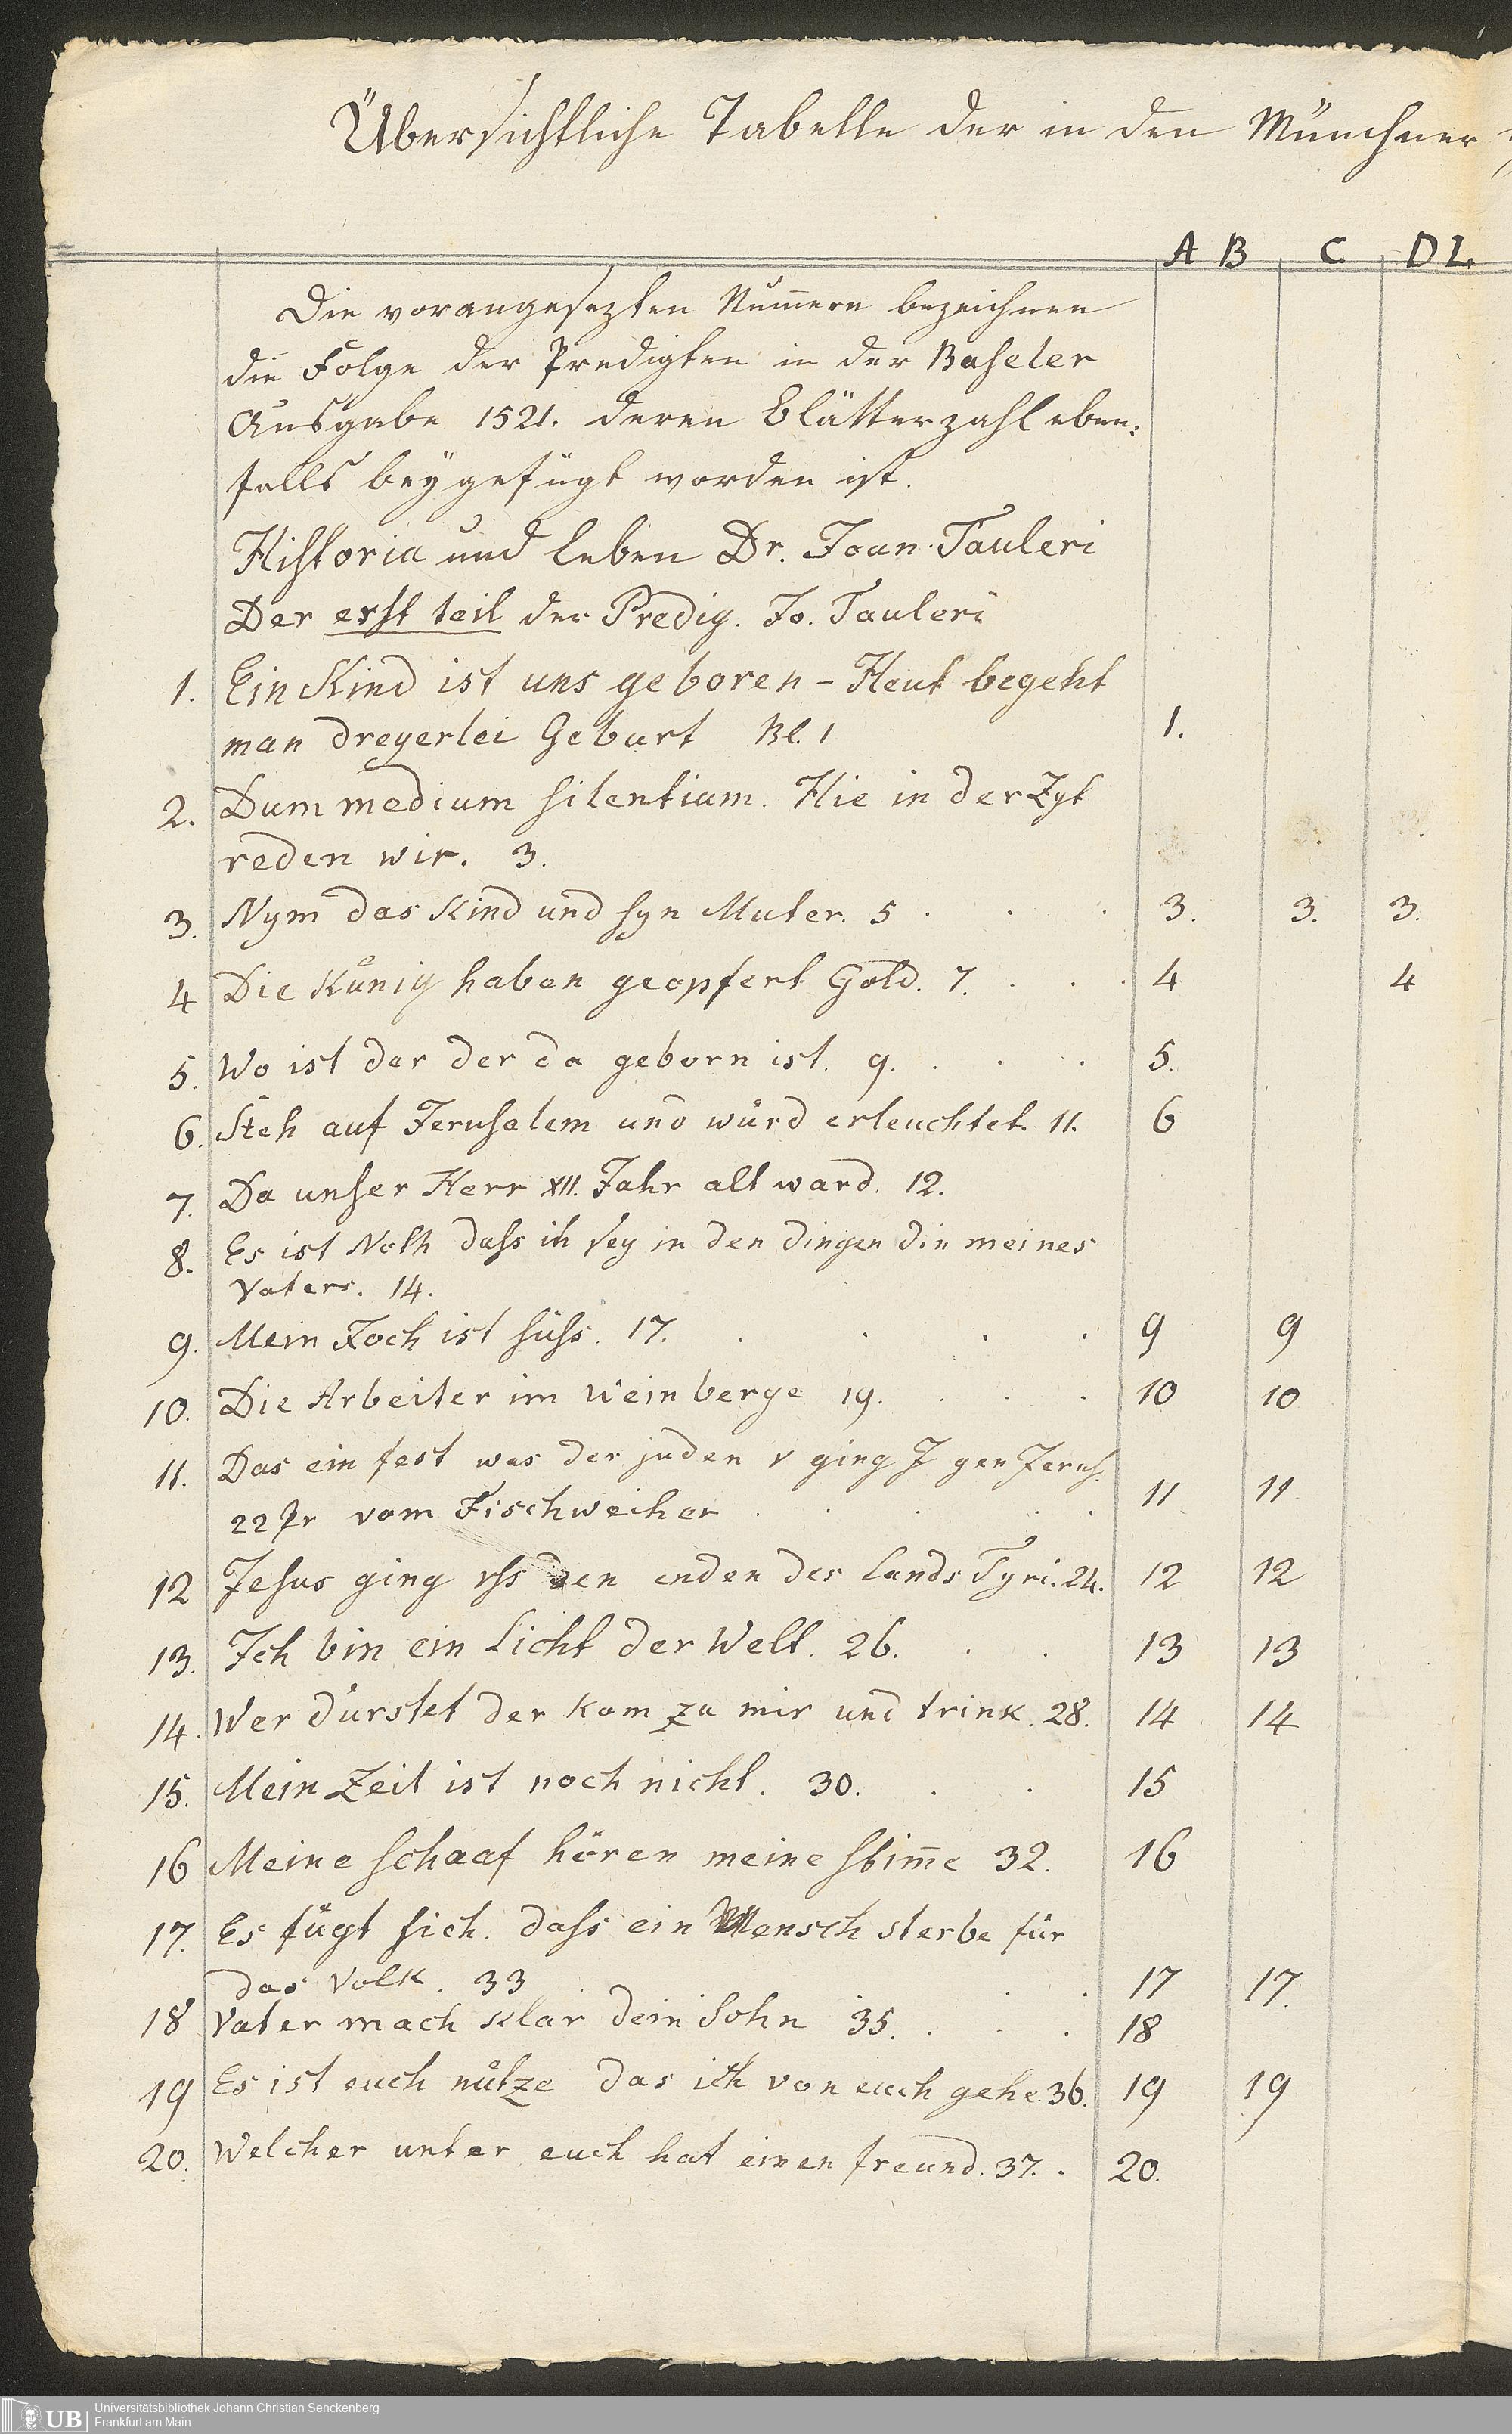 Übersichtliche Tabelle der in den Münchner
A B C D L.
Die vorangesezten Num̄ern bezeichnen
die Folge der Predigten in der Baseler
Ausgabe 1521. deren Blätterzahl eben:
falls beygefügt worden ist.
Historia und leben Dr. Joan. Tauleri
Der erst teil der Predig. Jo. Tauleri
1. Ein Kind ist uns geboren - Heut begeht
man dreyerlei Geburt Bl. 1 1.
2. Dum medium silentium. Hie in der Zyt
reden wir. 3.
3. Nym das Kind und syn Muter. 5 . . . 3. 3. 3.
4 Die Kůnig haben geopfert Gold. 7. . . . 4 4
5. Wo ist der der da geborn ist. 9. . . . 5.
6. Steh auf Jerusalem und wůrd erleuchtet. 11. 6
7. Da unser Herr XII. Jahr alt ward. 12.
8. Es ist Noth dass ih sey in den dingen din meines
Vaters. 14.
9. Mein Joch ist süss. 17. . . . . 9 9
10. Die Arbeiter im Weinberge 19. . . . 10 10
11. Das ein fest was der juden v ging J gen Jerus.
22 Pr vom Fischweiher . . . . . 11 11
12 Jesus ging vss den enden des lands Tyri. 24. 12 12
13. Ich bin ein Licht der Welt. 26. . . 13 13
14. Wer důrstet der kom zu mir und trink. 28. 14 14
15. Mein Zeit ist noch nicht. 30. . . 15
16 Meine schaaf hören meine stim̄e 32. 16
17. Es fügt sich. dass ein Mensch sterbe für
das Volk. 33 . . . 17 17.
18 Vater mach klar dein Sohn 35. . . . 18
19 Es ist euch nůtze das ich von euch gehe. 36. 19 19
20. Welcher unter euch hat einen freund. 37. . 20.
UB
Universitätsbibliothek Johann Christian Senckenberg
Frankfurt am Main